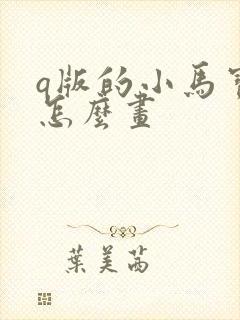 q版的小馬
怎麼畫
葉美茜